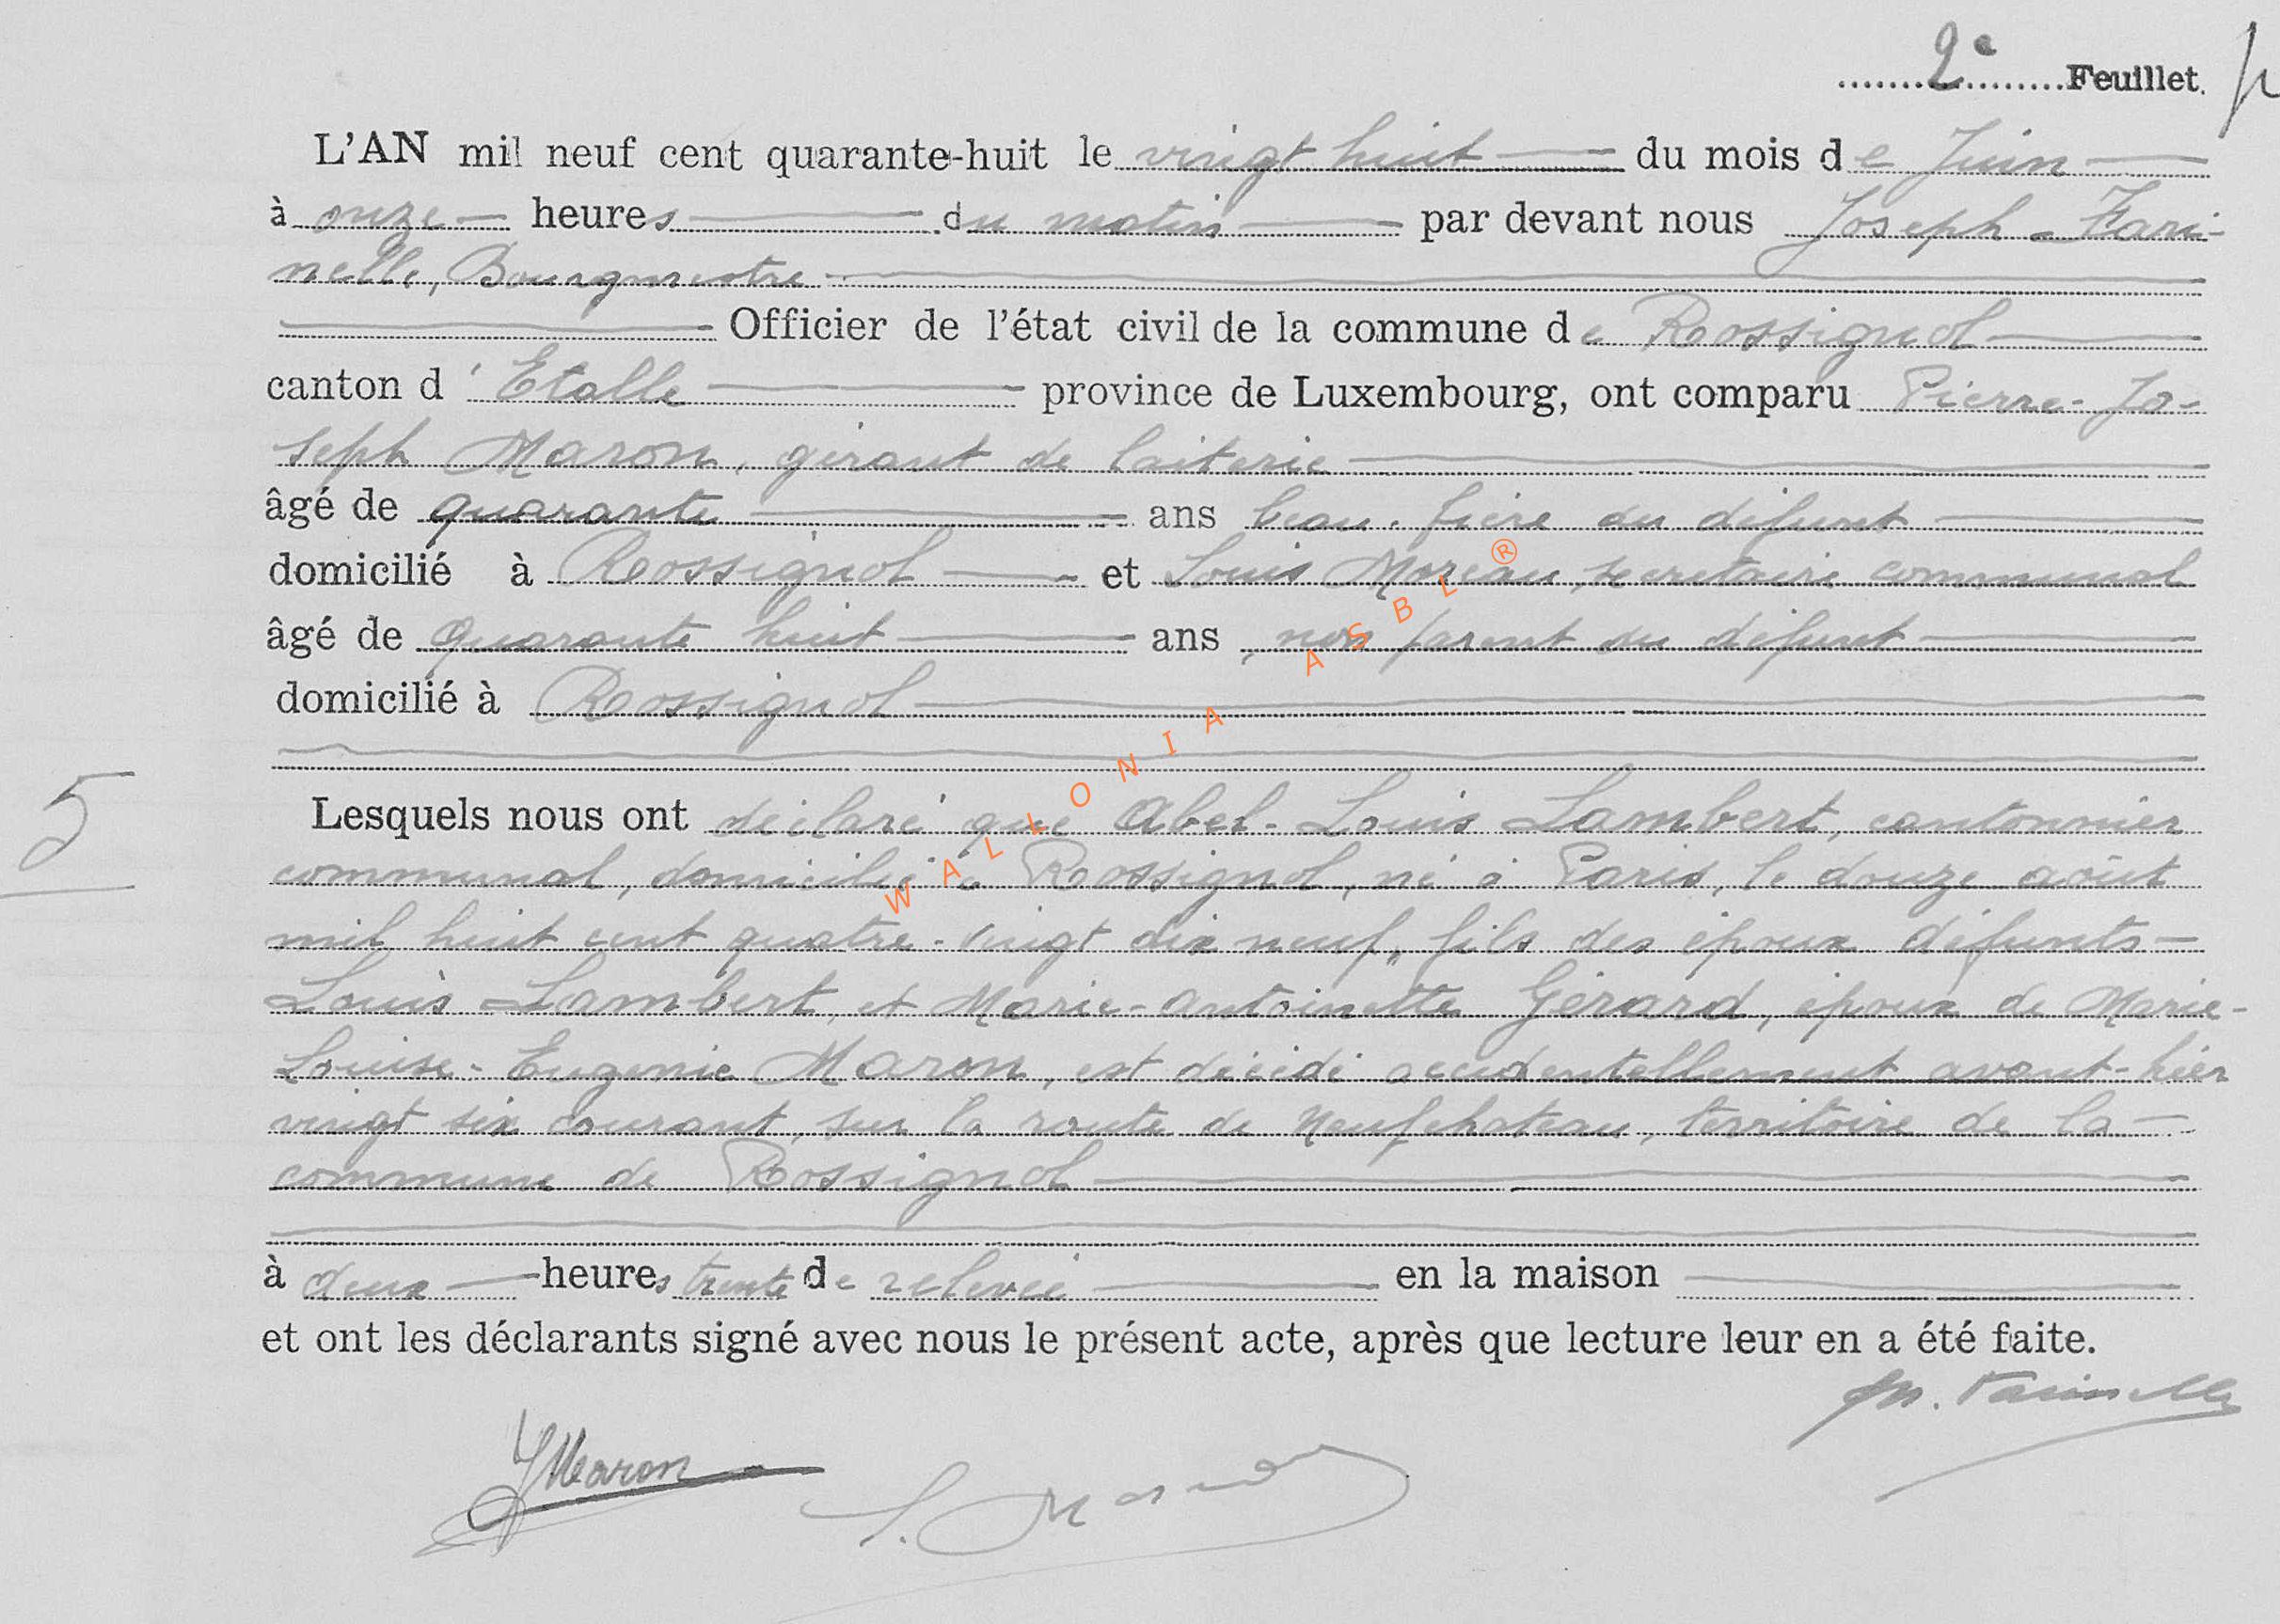 2e Feuillet.
L'AN mil neuf cent quarante-huit le vingt huit du mois de Juin
à onze heures du matin par devant nous Joseph Fari-
nelle, Bourgmestre
Officier de l'état civil de la commune de Rossignol
canton d'Etalle province de Luxembourg, ont comparu Pierre-Jo-
seph Maron, gérant de laiterie
âgé de quarante ans beau-frère du défunt
domicilié à Rossignol et Louis Moreau, secrétaire communal
âgé de quarante huit ans, non parent du défunt
domicilié à Rossignol
5
Lesquels nous ont déclaré que Abel-Louis Lambert, cantonnier
communal, domicilié à Rossignol, né à Paris, le douze août
mil huit cent quatre-vingt dix neuf, fils des époux défunts
Louis Lambert, et Marie-Antoinette Gérard, époux de Marie-
Louise-Eugenie Maron, est décédé accidentellement avant-hier
vingt six courant, sur la route de Neufchateau, territoire de la
commune de Rossignol
à deux heures trente de relevée en la maison
et ont les déclarants signé avec nous le présent acte, après que lecture leur en a été faite.
Farinelle
JMaron
L. Moreau
WALLONIA ASBL ®